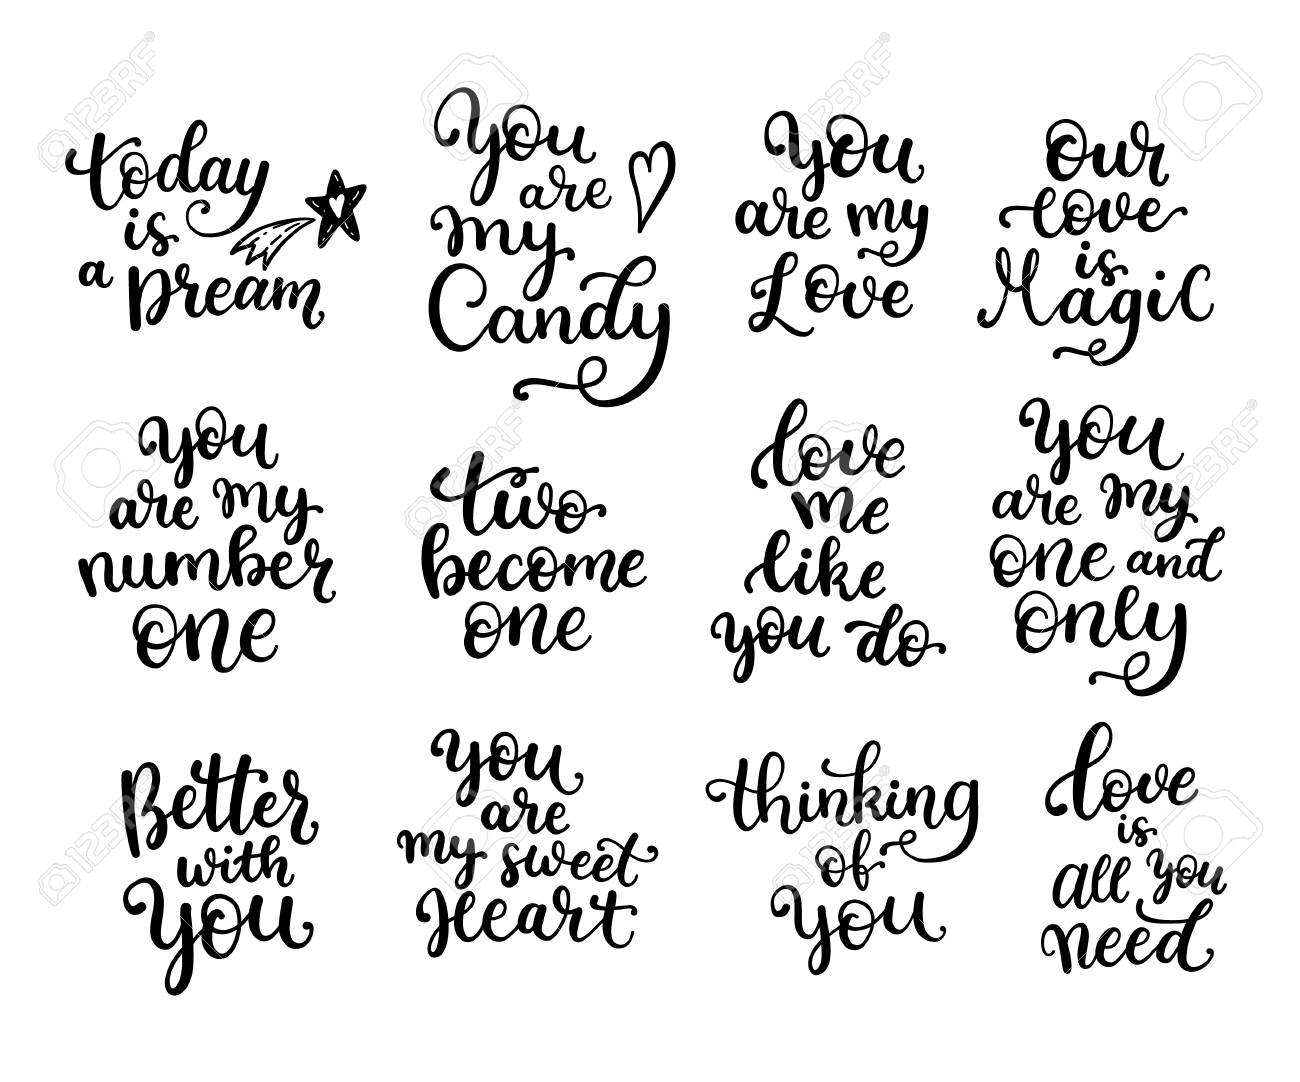 today
is
a Dream
You
are
my
Candy
You
are my
Love
Our
love
is
Magic
you
are my
number
one
two
become
one
love
me
like
you do
you
are my
one and
only
Better
with
you
you
are
my sweet
Heart
thinking
of
you
love
is
all you
need
123RF
123RF
123RF
123RF
123RF
123RF
123RF
123RF
123RF